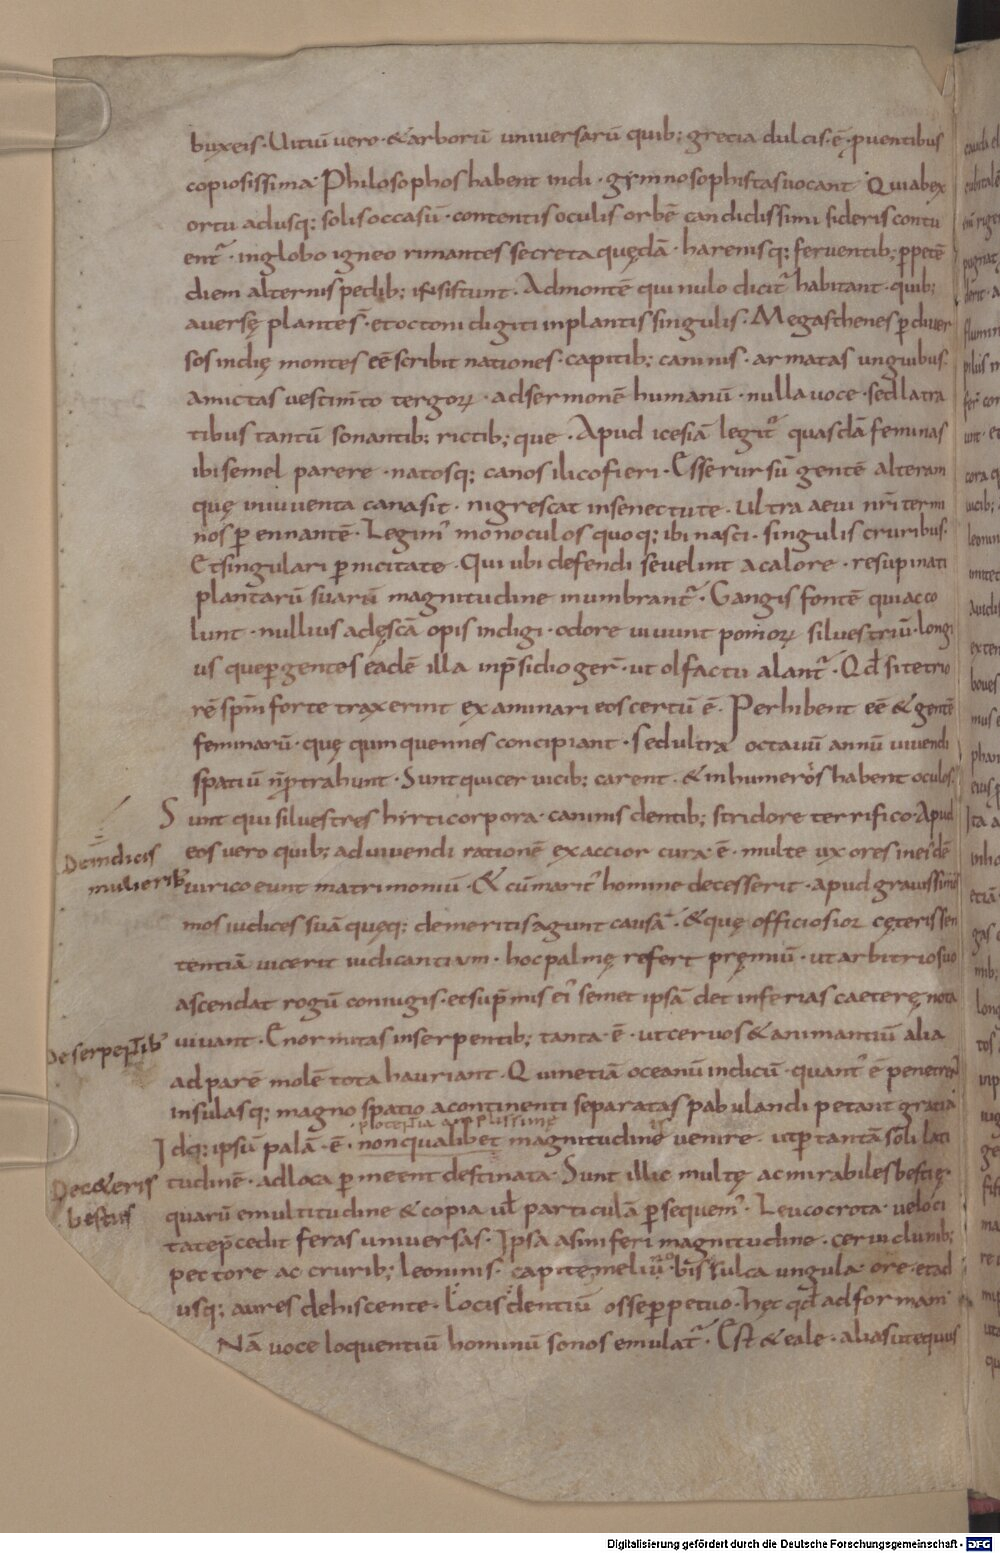 buxeis · Uitiū vero · &arborū universarū quib; grecia dulcis · ē · ꝓventibus
copiosissima · Philosophos habent indi · gymnosophistas vocant · Qui ab ex
ortu ad usq; solis occasū · contentis oculis orbē candidissimi sideris contu
ent̄ · in globo igneo rimantes secreta quędā · harenisq; ferventib; ꝑpetē
diem alternis pedib; insistunt · Ad montē qui nulo dicit̄ habitant · quib;
aversę plantę s̄ · et octoni digiti in plantis singulis · Megasthenes ꝑ diver
sos indię montes eē scribit nationes · capitib; caninis · armatas unguibus ·
amictas vestim̄to tergoꝝ · ad sermonē humanū · nulla voce · sed latra
tibus tantū sonantib; rictib; que · Apud icesiā legit̄ quasdā feminas
ibi semel parere · natosq; canos ilico fieri · Esse rursū gentē alteram
quę in iuventa cana sit · nigrescat in senectute · Ultra aevi nr̄i termi
nos ꝑennantē · Legim' monoculos quoq; ibi nasci · singulis cruribus ·
Et singulari ꝑnicitate · Qui ubi defendi se velint a calore · resupinati
plantarū suarū magnitudine inumbrant̄ · Gangis fontē qui acco
lunt · nullius ad ęscā opis indigi · odore vivunt pomoꝝ silvestriū · longi
us que ꝑgentes eadē illa in p̄sidio ger̄ · ut olfactu alant̄ · Qđ si tetrio
rē sp̄m forte traxerint exanimari eos certū ē · Perhibent eē & gentē
feminarū · quę quinquennes concipiant · sed ultra octavū annū vivendi
spatiū n̄ ꝓtrahunt · Sunt qui cervicib; carent · & in humeros habent oculos ·
Sunt qui silvestres hirti corpora · caninis dentib; stridore terrifico · Apud
eos vero quib; ad vivendi rationē exaccior cura ē · multe uxores in eiđē
De indicis
mulierib;
viri coeunt matrimoniū · & cū marit' homine decesserit · apud gravissi
mos iudices suā quęq; de meritis agunt causā · &quę officiosior cęteris sen
tentiā vicerit iudicantium · hoc palmę refert pręmiū · ut arbitrio suo
ascendat rogū coniugis · et sup̄mis ei' semet ipsā det inferias caeterę nota
vivunt · Enormitas in serpentib; tanta · ē · ut cervos & animantiū alia
De serpentib;
ad parē molē tota hauriant · Quin etiā oceanū indicū · quant' ē penetrent
insulasq; magno spatio a continenti separatas pabulandi petant gratia
Idq; ipsū palā · ē · non qualibet magnitudine venire · ut ꝑ tantā soli lati
tudinē · ad loca ꝑmeent destinata · Sunt illic multę ac mirabiles bestię ·
De cæteris
bestiis
quarū e multitudine & copia vł particulā ꝑsequem' · Leucocrota · veloci
tate p̄cedit feras universas · Ipsa asini feri magnitudine · cervi clunib;
pectore ac crurib; leoninis · capite meliū · bisulca ungula · ore · et ad
usq; aures dehiscente · Locis dentiū osse ꝑpetuo · hęc qđ ad formam
Nā voce loquentiū hominū sonos emulat̄ · Est & eale · alias ut equus
Digitalisierung gefördert durch die Deutsche Forschungsgemeinschaft - DFG